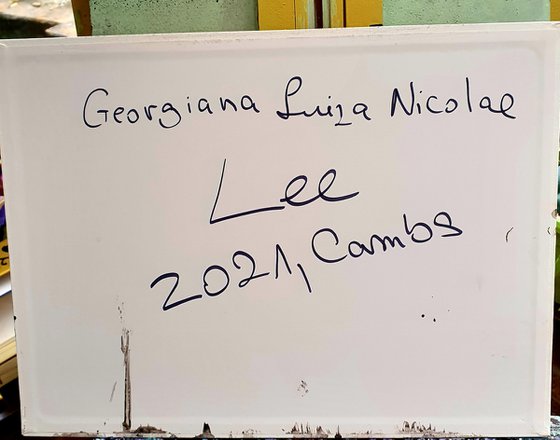 Georgiana Luiza Nicolae
Lee
2021, Cambs